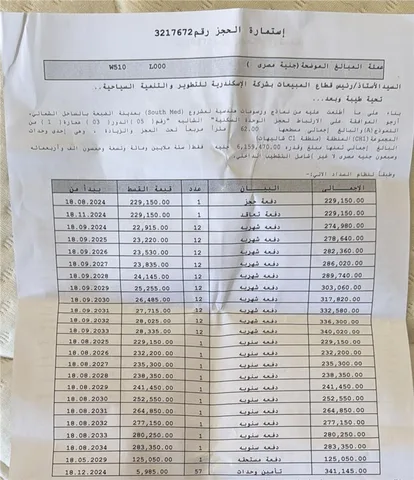 إستمارة الحجز رقم 3217672
عملة المبالغ الموضحة (جنية مصرى ) L000 W510
السيد الأستاذ/رئيس قطاع المبيعات بشركة الإسكندرية للتطوير والتنمية السياحية..
تحية طيبة وبعد...
بناء على ما اطلعت عليه من نماذج ورسومات هندسية لمشروع (South Med) بمدينة الضبعة بالساحل الشمالى.
أرجو الموافقة على الارتباط لحجز الوحدة السكنية " الشاليه " رقم( 05 )الدور( 03 ) عمارة( 1 ) من
النموذج(A)والبالغ إجمالى مسطحها 62.00 متراً مربعاً تحت العجز والزيادة ، وهى إحدى وحدات
المجموعة(CH1) المنطقة (منطقة C1 شاليهات)
البالغ إجمالى ثمنها مبلغ وقدره 4,159,470.00 جنيه فقط( أربعة ملايين ومائة وتسعة وخمسون ألف وأربعمائة
وسبعون جنيه مصرى لا غير )شامل التشطيب الداخلى.
وطبقاً لنظام السداد الآتى:-
الإجمـــالى البيــــان عدد قيمة القسط يبدأ من
229,150.00 دفعة حجز 1 229,150.00 18.08.2024
229,150.00 دفعة تعاقد 1 229,150.00 18.11.2024
274,980.00 دفعه شهريه 12 22,915.00 18.09.2024
278,640.00 دفعه شهريه 12 23,220.00 18.09.2025
282,360.00 دفعه شهريه 12 23,530.00 18.09.2026
286,020.00 دفعه شهريه 12 23,835.00 18.09.2027
289,740.00 دفعه شهريه 12 24,145.00 18.09.2028
303,060.00 دفعه شهريه 12 25,255.00 18.09.2029
317,820.00 دفعه شهريه 12 26,485.00 18.09.2030
332,580.00 دفعه شهريه 12 27,715.00 18.09.2031
336,300.00 دفعه شهريه 12 28,025.00 18.09.2032
340,020.00 دفعه شهريه 12 28,335.00 18.09.2033
229,150.00 دفعه سنويه 1 229,150.00 18.08.2025
232,200.00 دفعه سنويه 1 232,200.00 18.08.2026
235,300.00 دفعه سنويه 1 235,300.00 18.08.2027
238,350.00 دفعه سنويه 1 238,350.00 18.08.2028
241,450.00 دفعه سنويه 1 241,450.00 18.08.2029
252,550.00 دفعه سنويه 1 252,550.00 18.08.2030
264,850.00 دفعه سنويه 1 264,850.00 18.08.2031
277,150.00 دفعه سنويه 1 277,150.00 18.08.2032
280,250.00 دفعه سنويه 1 280,250.00 18.08.2033
283,350.00 دفعه سنويه 1 283,350.00 18.08.2034
125,050.00 دفعة مستحقه 1 125,050.00 18.05.2029
341,145.00 تأمين وحدات 57 5,985.00 18.12.2024